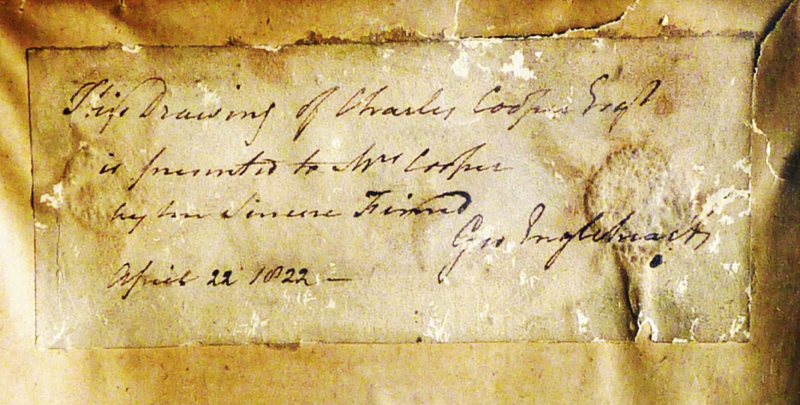 This Drawing of Charles Cooper Esqr
is presented to Mrs Cooper
by her Sincere Friend
Geo Engleheart
April 22 1822 —